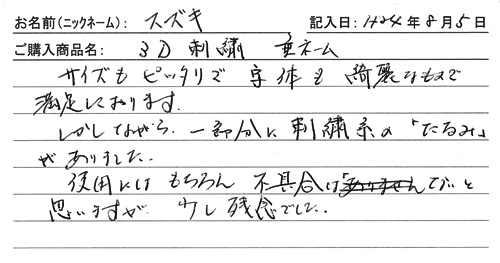 お名前(ニックネーム): スズキ 記入日: H24年8月5日
ご購入商品名: 3D 刺繍 ネーム
サイズも ピッタリで 字体も 綺麗なもので
満足しております.
しかしながら. 一部分に 刺繍糸の 「たるみ」
がありました.
使用には もちろん 不具合は ありません ないと
思いますが 少し 残念でした.